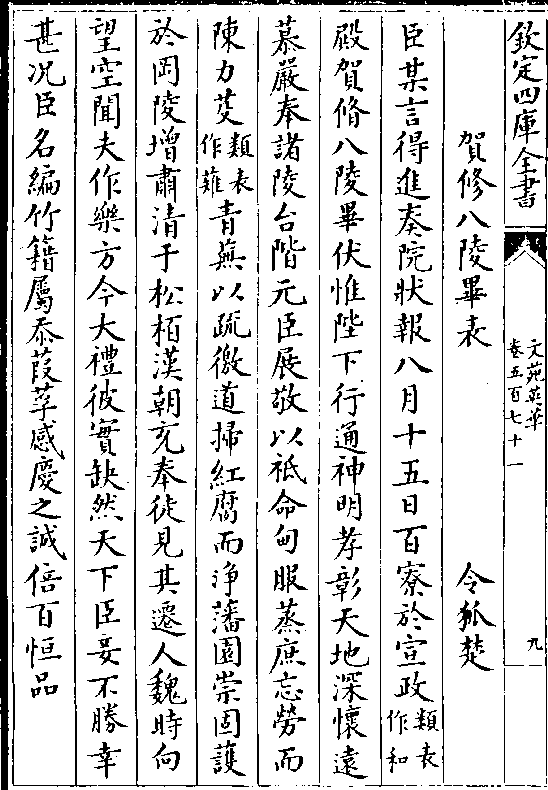 欽定四庫全書
文苑英華
卷五百七十一
九
賀修八陵畢表 令狐楚
臣某言得進奏院狀報八月十五日百寮於宣政類表作和
殿賀脩八陵畢伏惟陛下行通神明孝彰天地深懷遠
慕嚴奉諸陵台階元臣展敬以祇命甸服蒸庶忘勞而
陳力芟類表作薙青蕪以疏徼道掃紅腐而淨藩園崇固護
於岡陵增肅清于松栢漢朝充奉徒見其遷人魏時向
望空聞夫作樂方今大禮彼實缺然天下臣妾不勝幸
甚况臣名編竹籍屬忝葭莩感慶之誠倍百恒品